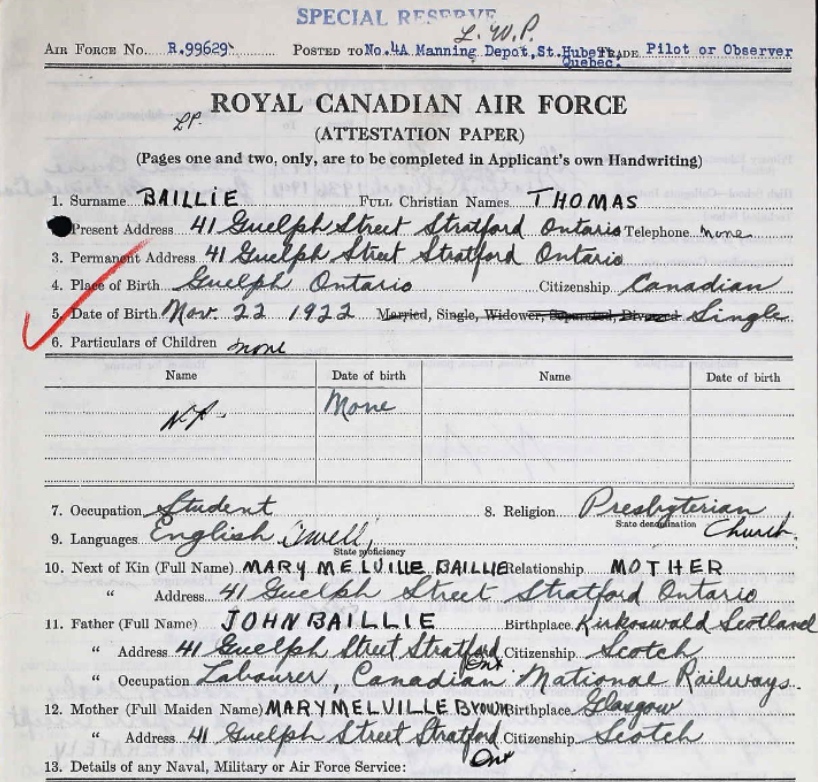 SPECIAL RESERVE
L.W.P.
AIR FORCE NO. R.99629 POSTED TO No.4A Manning Depot, St.Hubert, Quebec. TRADE Pilot or Observer
ROYAL CANADIAN AIR FORCE
LP.
(ATTESTATION PAPER)
(Pages one and two, only, are to be completed in Applicant's own Handwriting)
1. Surname BAILLIE FULL Christian Names THOMAS
Present Address 41 Guelph Street Stratford Ontario Telephone none
3. Permanent Address 41 Guelph Street Stratford Ontario
4. Place of Birth Guelph Ontario Citizenship Canadian
5. Date of Birth Nov. 22 1922 Married, Single, Widower, Separated, Divorced Single
6. Particulars of Children none
Name Date of birth Name Date of birth
None
7. Occupation Student 8. Religion Presbyterian Church.
State denomination
9. Languages English (well)
State proficiency
10. Next of Kin (Full Name) MARY MELVILLE BAILLIE Relationship MOTHER
" Address 41 Guelph Street Stratford Ontario
11. Father (Full Name) JOHN BAILLIE Birthplace Kirkoswald Scotland
" Address 41 Guelph Street Stratford Ont Citizenship Scotch
" Occupation Labourer, Canadian National Railways.
12. Mother (Full Maiden Name) MARY MELVILLE BROWN Birthplace Glasgow
" Address 41 Guelph Street Stratford Ont Citizenship Scotch
13. Details of any Naval, Military or Air Force Service: